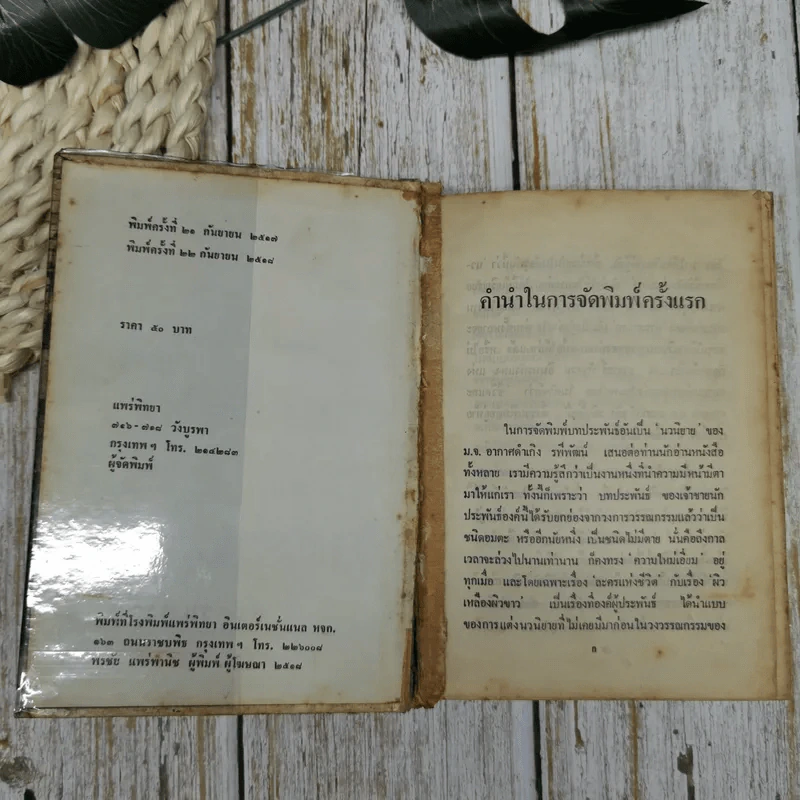 พิมพ์ครั้งที่ ๒๑ กันยายน ๒๕๑๗
พิมพ์ครั้งที่ ๒๒ กันยายน ๒๕๑๘
ราคา ๕๐ บาท
แพร่พิทยา
๗๑๖-๗๑๘ วังบูรพา
กรุงเทพฯ โทร. ๒๑๔๒๘๓
ผู้จัดพิมพ์
พิมพ์ที่โรงพิมพ์แพร่พิทยา อินเตอร์เนชั่นแนล หจก.
๑๖๓ ถนนราชบพิธ กรุงเทพฯ โทร. ๒๒๖๐๐๘
พรชัย แพร่พานิช ผู้พิมพ์ ผู้โฆษณา ๒๕๑๘
คำนำในการจัดพิมพ์ครั้งแรก
ในการจัดพิมพ์บทประพันธ์อันเป็น 'นวนิยาย' ของ
ม.จ. อากาศดำเกิง รพีพัฒน์ เสนอต่อท่านนักอ่านหนังสือ
ทั้งหลาย เรามีความรู้สึกว่าเป็นงานหนึ่งที่นำความมีหน้ามีตา
มาให้แก่เรา ทั้งนี้ก็เพราะว่า บทประพันธ์ ของเจ้าชายนัก
ประพันธ์องค์นี้ได้รับยกย่องจากวงการวรรณกรรมแล้วว่าเป็น
ชนิดอมตะ หรืออีกนัยหนึ่ง เป็นชนิดไม่มีตาย นั่นคือถึงกาล
เวลาจะล่วงไปนานเท่านาน ก็คงทรง 'ความใหม่เอี่ยม' อยู่
ทุกเมื่อ และโดยเฉพาะเรื่อง 'ละครแห่งชีวิต' กับเรื่อง 'ผิว
เหลืองผิวขาว' เป็นเรื่องที่องค์ผู้ประพันธ์ ได้นำแบบ
ของการแต่งนวนิยายที่ไม่เคยมีมาก่อนในวงวรรณกรรมของ
ก